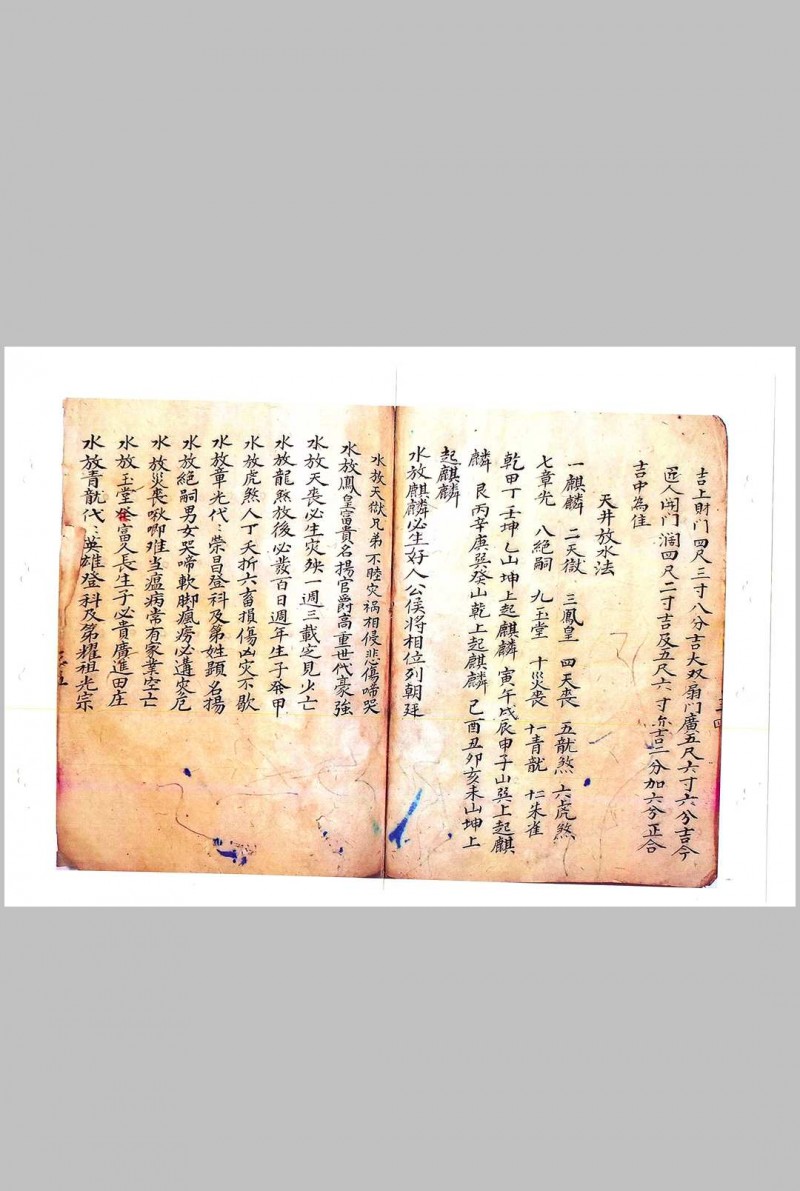 吉上財门四尺三寸八分吉大双扇门廣五尺六寸六分吉今
匠人開门濶四尺二寸吉及五尺六寸亦吉二分加六分正合
吉中為佳
天井放水法
一麒麟 二天獄 三鳳皇 四天丧 五龍煞 六虎煞
七章光 八絕嗣 九玉堂 十災丧 十一青龍 十二朱雀
乾甲丁壬坤乙山坤上起麒麟 寅午戌辰申子山巽上起麒
麟 艮丙辛庚巽癸山乾上起麒麟 己酉丑卯亥未山坤上
起麒麟
水放麒麟必生好人公侯将相位列朝廷
水放天獄兄弟不睦灾祸相侵悲傷啼哭
水放鳳皇富貴名揚官爵高重世代豪強
水放天丧必生灾殃一週三載定見少亡
水放龍煞放後必發百日週年生子発甲
水放虎煞人丁夭折六畜損傷凶灾不歇
水放章光代:荣昌登科及第姓顕名揚
水放絕嗣男女哭啼軟脚瘋痨必遘灾危
水放災丧啾唧难当瘟病常有家業空亡
水放玉堂發富久長生子必貴廣進田庄
水放青龍代:英雄登科及第耀祖光宗